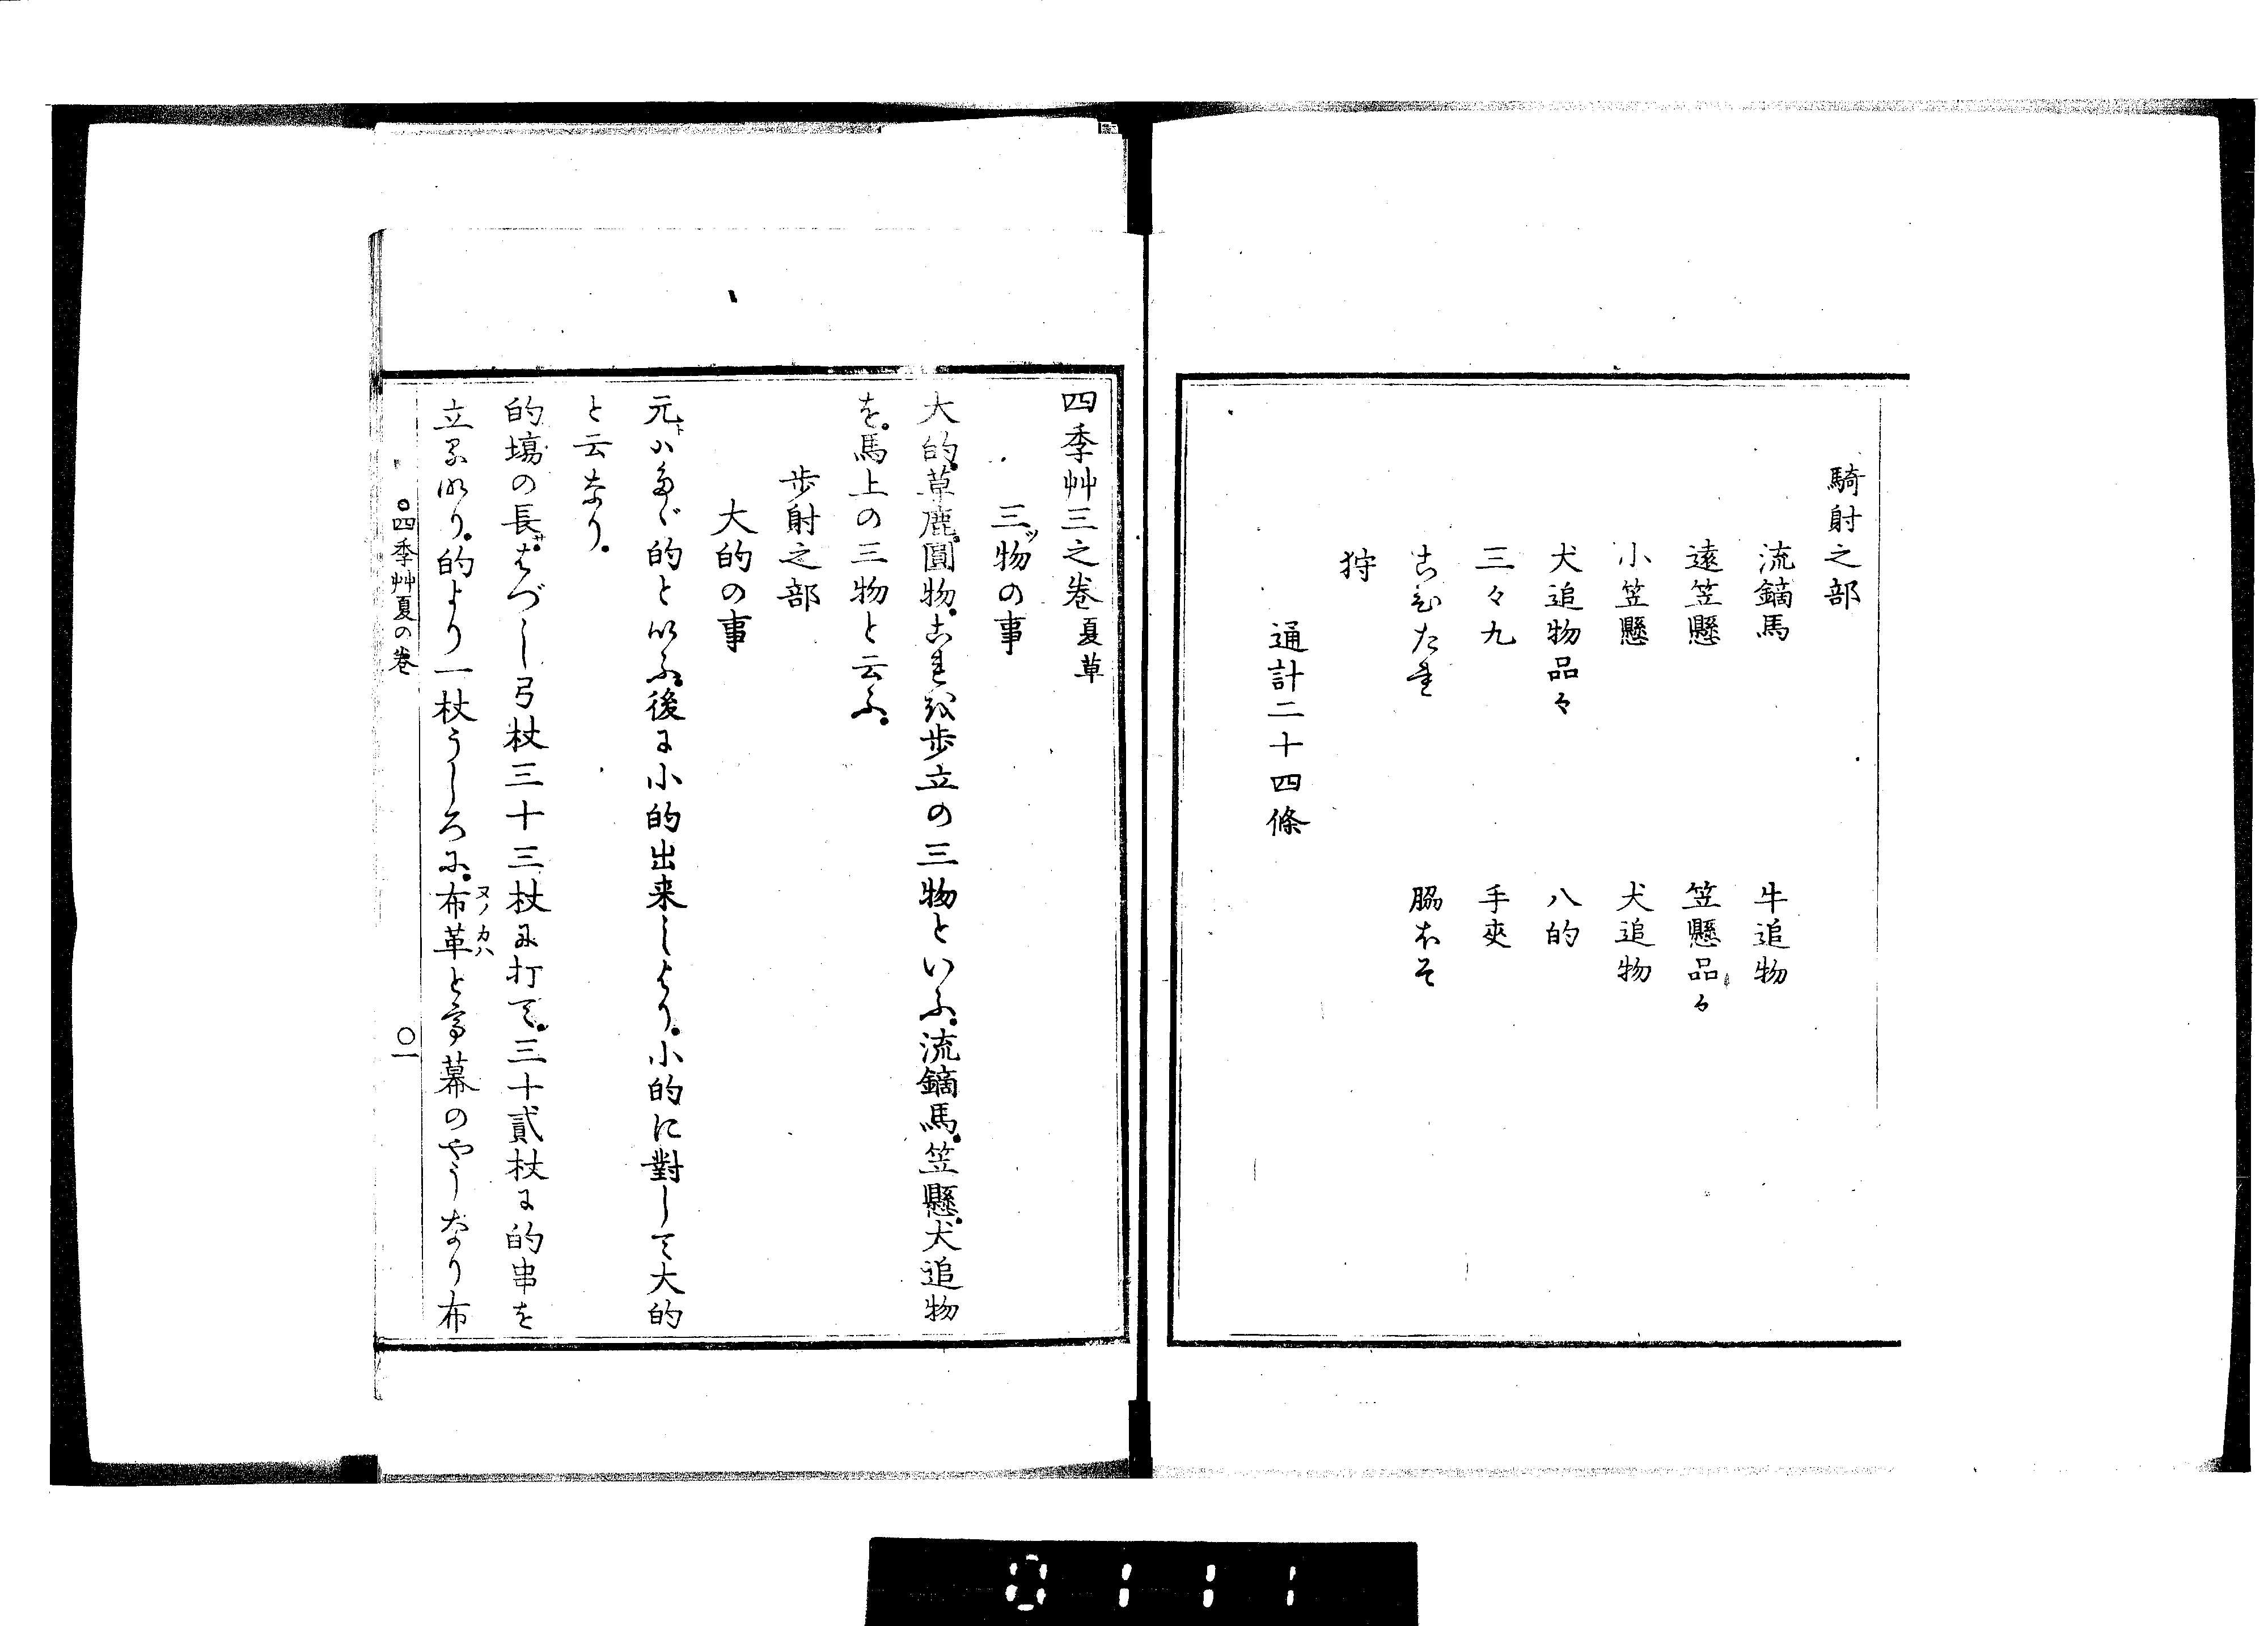 騎射之部
流鏑馬　牛追物
遠笠懸　笠懸品々
小笠懸　犬追物
犬追物品々　八的
三々九　手夾
古ひたれ　脇ほそ
狩
通計二十四條
四季艸三之巻夏草
三ッ物の事
大的。草鹿。圓物。これを歩立の三物といふ。流鏑馬。笠懸。犬追物
を。馬上の三物と云ふ。
歩射之部
大的の事
元トハたゞ的といふ。後に小的出来しより。小的に對して大的
と云なり。
的塲の長サ。はづし弓杖三十三杖に打て。三十貳杖に的串を
立るなり。的より一杖うしろに。布革ヌノカハとて幕のやうなり布
○四季艸夏の巻
○一
0111